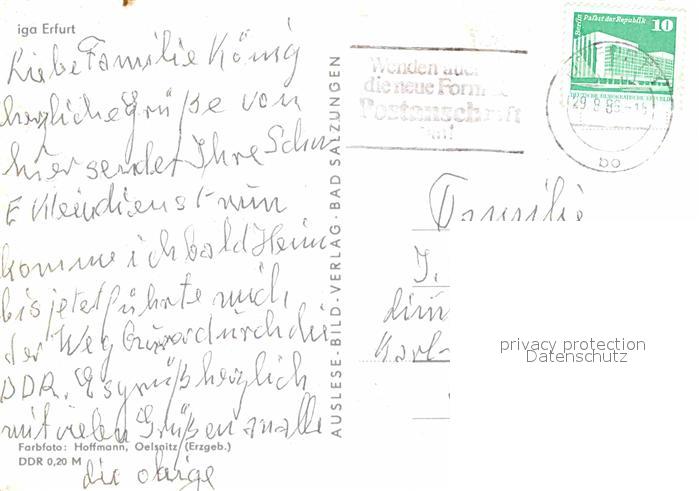 iga Erfurt
Liebe Familie König
herzliche Grüße von
hier sendet Ihre Schw
E Kleindienst nun
komme ich bald Heim
bis jetzt führte mich
der Weg durch die
DDR. Es grüßt herzlich
mit vielen Grüßen an alle
die obige
Farbfoto: Hoffmann, Oelsnitz (Erzgeb.)
DDR 0,20 M
AUSLESE-BILD-VERLAG · BAD SALZUNGEN
Wenden auch
die neue Form
Postanschrift
an!
Berlin Palast der Republik 10
DEUTSCHE DEMOKRATISCHE REPUBLIK
29.9.86-15
bo
Familie
J.
Karl-
privacy protection
Datenschutz